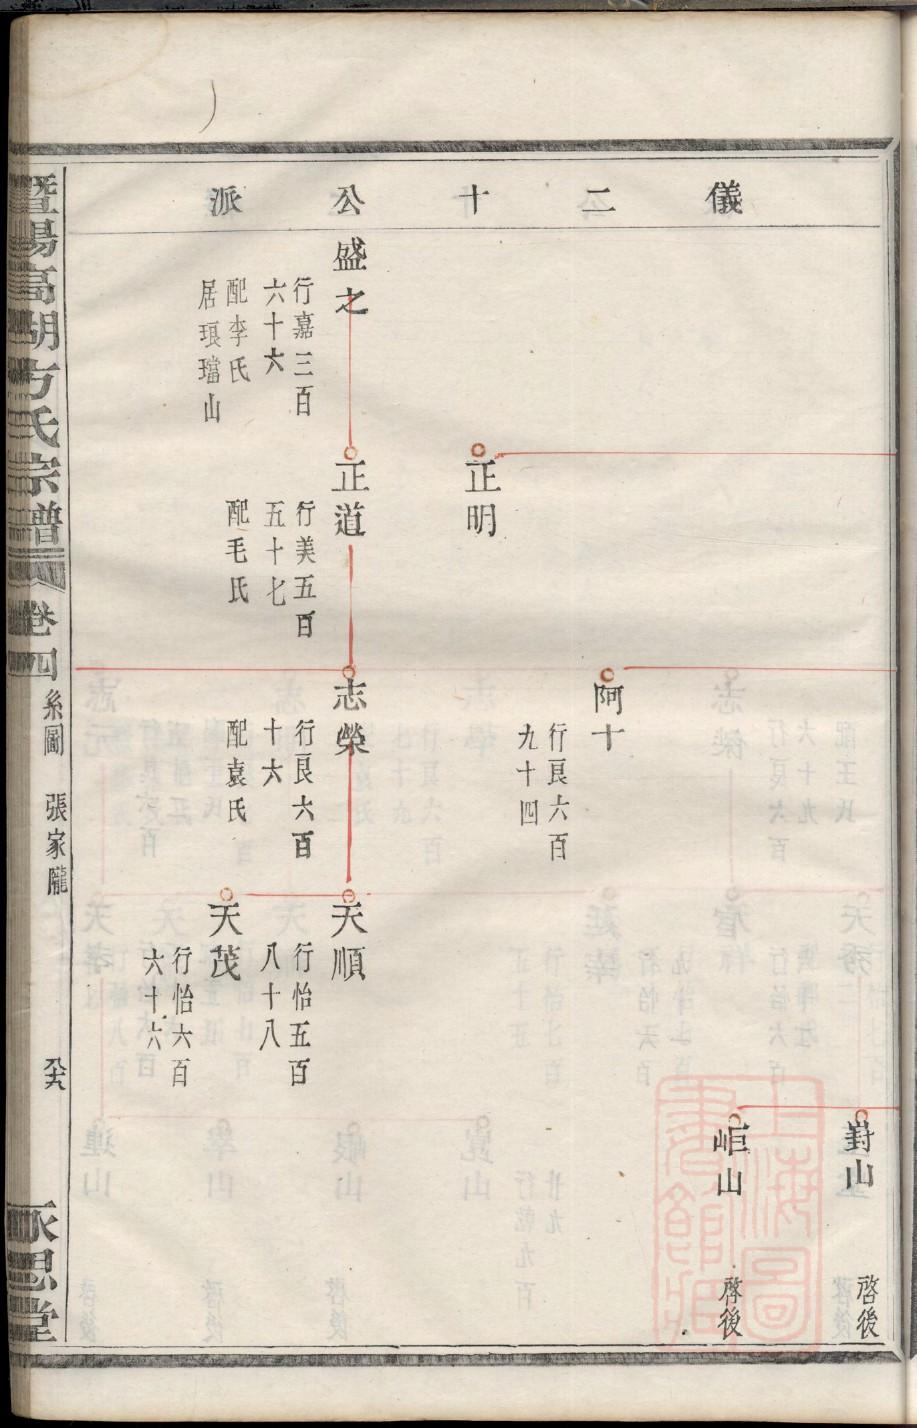 儀二十公派
嵵山
啓後
岠山
啓後
阿十
行良六百
九十四
正明
盛之
行嘉三百
六十六
配李氏
居琅璫山
正道
行美五百
五十七
配毛氏
志榮
行良六百
十六
配袁氏
天順
行怡五百
八十八
天茂
行怡六百
六十六
暨陽高湖方氏宗譜
卷四
系圖
張家隴
永思堂